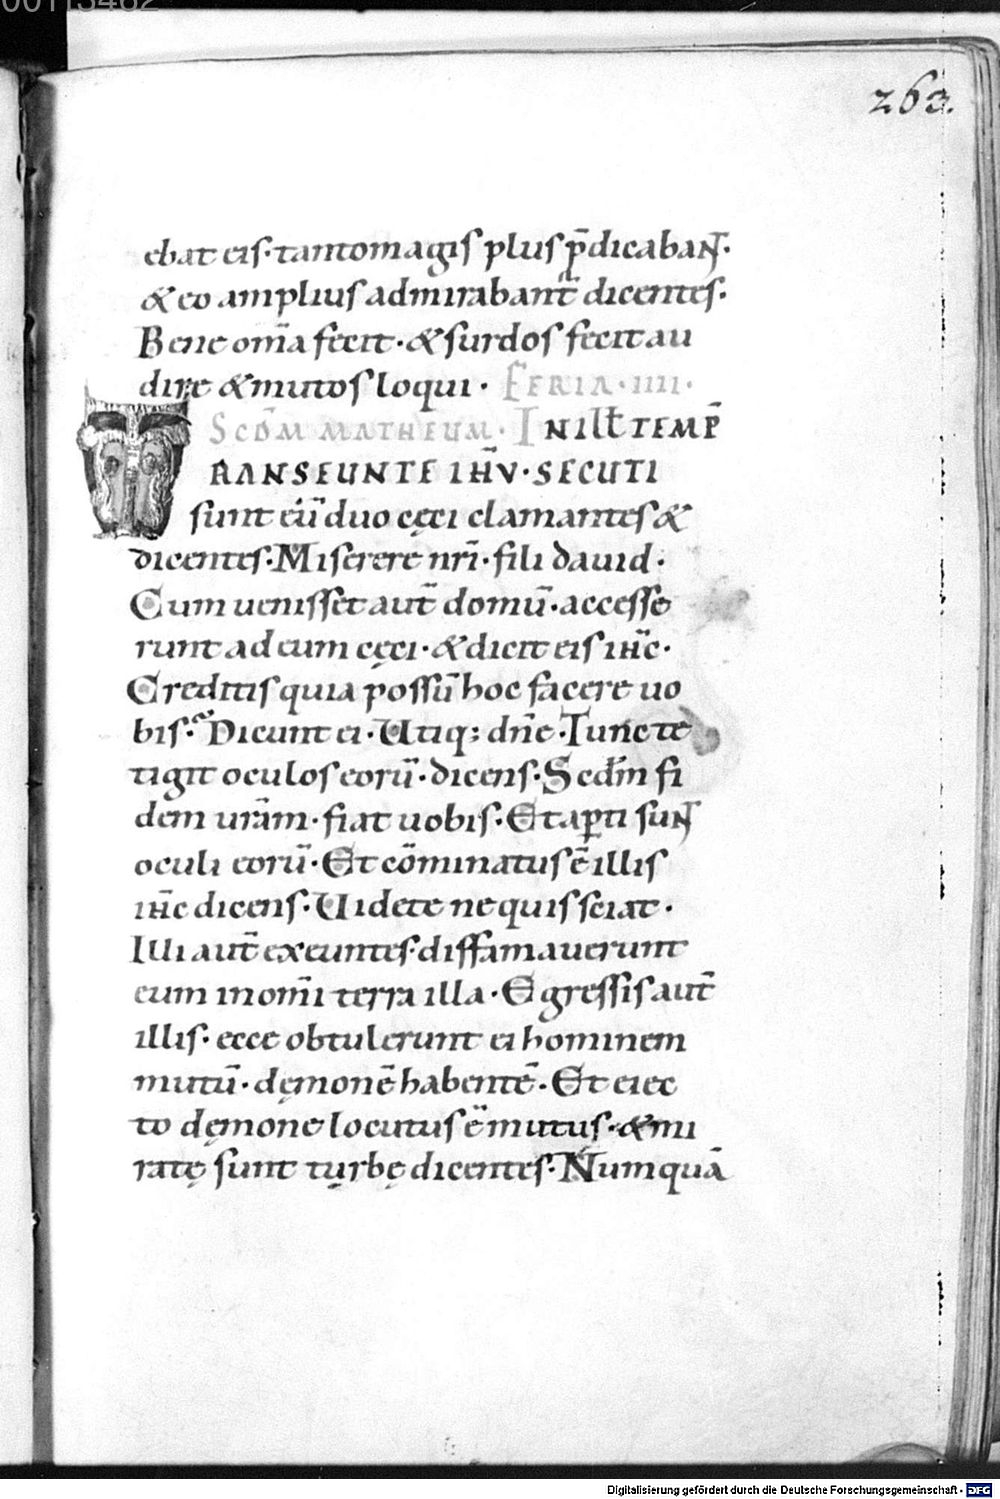 00113462
263.
ebat eis· tanto magis plus p̄dicaban̄t·
& eo amplius admirabant̄ dicentes·
Bene om̄a fecit· & surdos fecit au
dire & mutos loqui· FERIA· IIII·
SCDM MATHEUM· IN ILL̄ TEMP̄
TRANSEUNTE IHV̄· SECUTI
sunt eū duo cęci clamantes &
dicentes· Miserere nr̄i· fili dauid·
Cum uenisset aut̄ domū· accesse
runt ad eum cęci· & dicit eis ih̄c·
Creditis quia possū hoc facere uo
bis· Dicunt ei· Utiq; dn̄e· Tunc te
tigit oculos eorū· dicens· Scd̄m fi
dem ur̄am· fiat uobis· Et aꝑti sunt
oculi eorū· Et cōminatus ē illis
ih̄c dicens· Uidete ne quis sciat·
Illi aut̄ exeuntes· diffamauerunt
eum in om̄i terra illa· Egressis aut̄
illis· ecce obtulerunt ei hominem
mutū· dęmonē habentē· Et eiec
to dęmone locutus ē mutus· & mi
ratę sunt turbę dicentes· Numquā
Digitalisierung gefördert durch die Deutsche Forschungsgemeinschaft - DFG